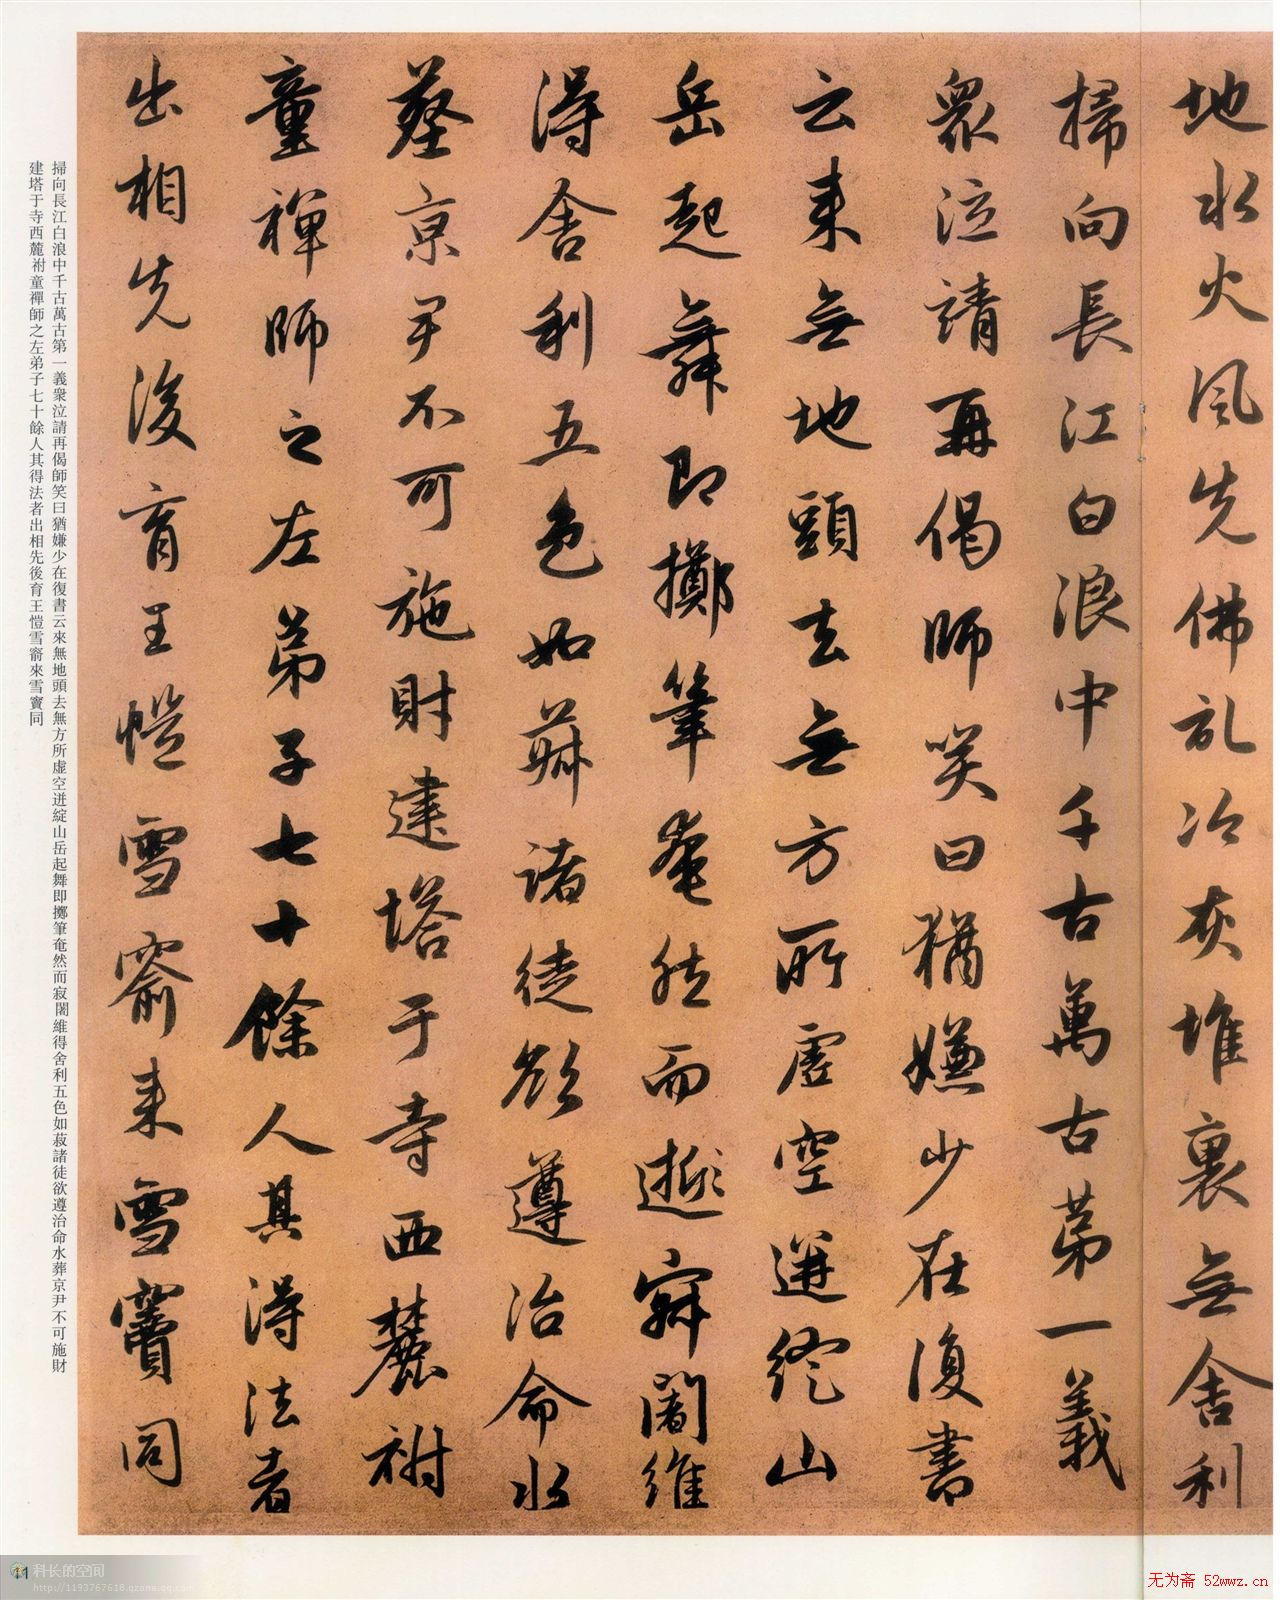 地水火風先佛記冷灰堆裏無舍利
掃向長江白浪中千古萬古第一義
衆泣請再偈師笑曰猶嫌少在復書
云來無地頭去無方所虛空迸綻山
岳起舞即擲筆奄然而逝寂闍維
得舍利五色如菽諸徒欲遵治命水
葬京尹不可施財建塔于寺西麓祔
童禪師之左弟子七十餘人其得法者
出相先後育王愷雪窬來雪竇同
掃向長江白浪中千古萬古第一義衆泣請再偈師笑曰猶嫌少在復書云來無地頭去無方所虛空迸綻山岳起舞即擲筆奄然而寂闍維得舍利五色如菽諸徒欲遵治命水葬京尹不可施財
建塔于寺西麓祔童禪師之左弟子七十餘人其得法者出相先後育王愷雪窬來雪竇同
科长的空间
http://1193767618.qzone.qq.com
无为斋 52wwz.cn